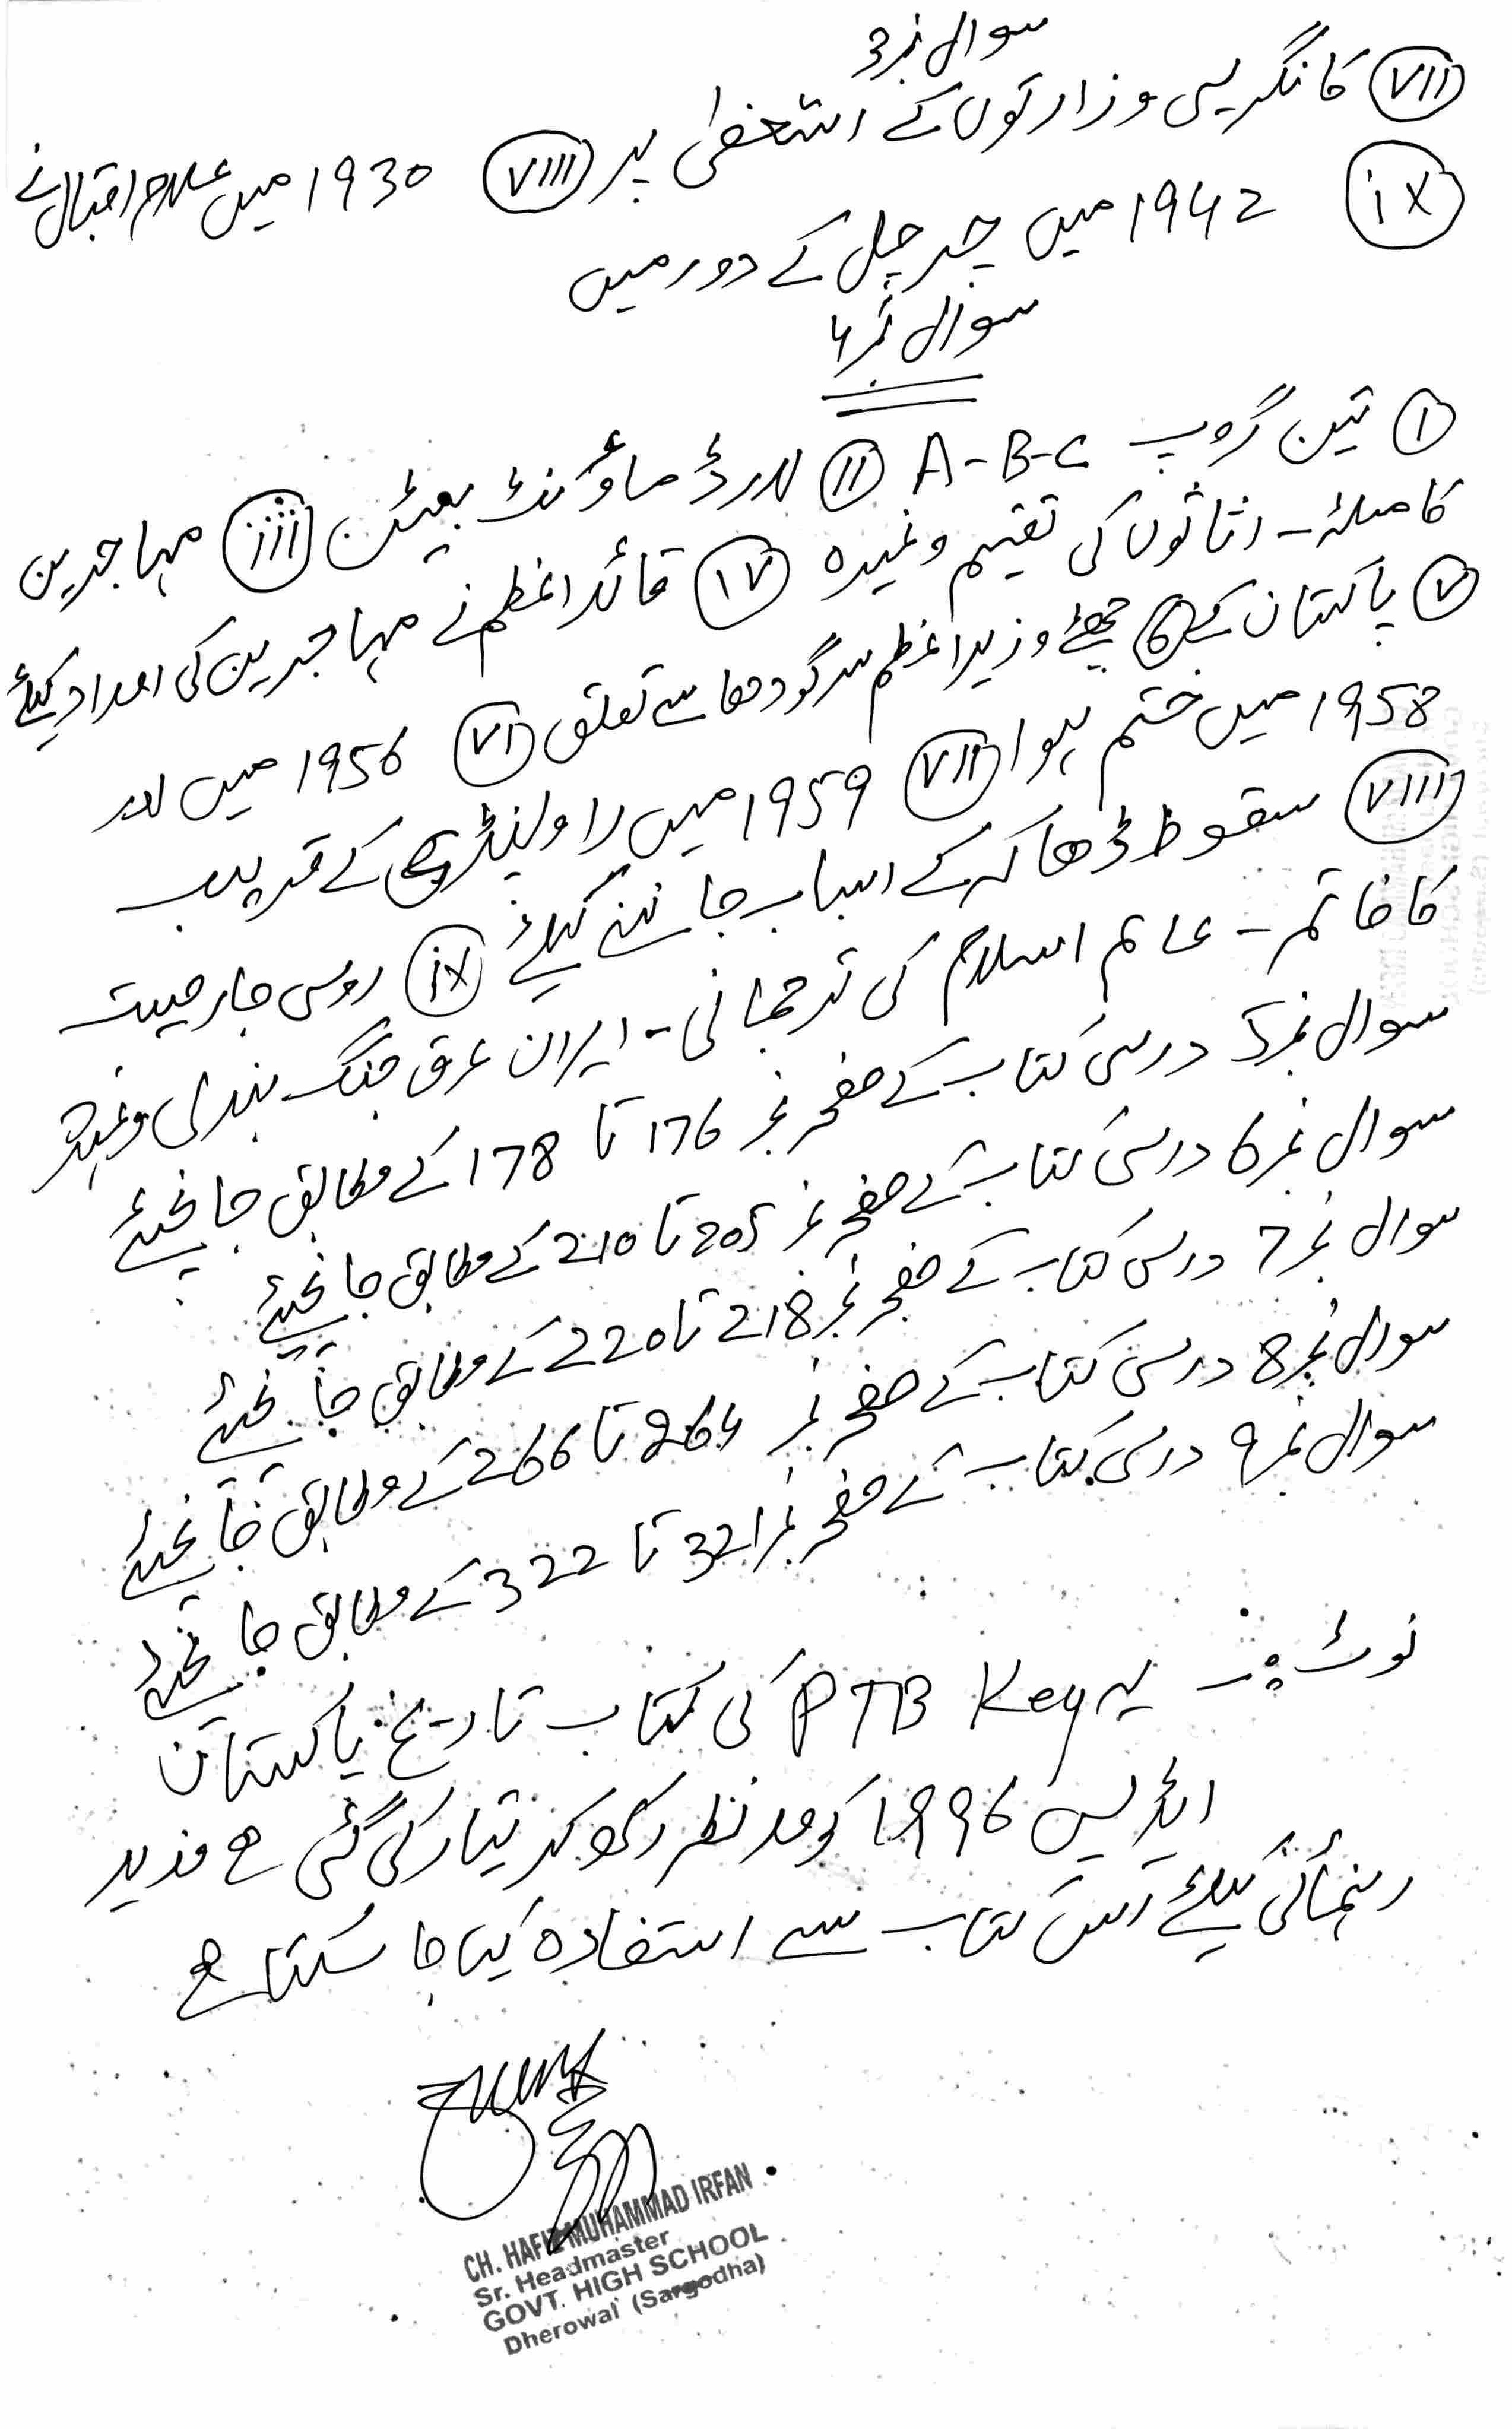 سوال نمبر 3
(VII) کانگریسی وزارتوں کے استعفیٰ پر (VIII) 1930 میں علامہ اقبال نے
(ix) 1942 میں چرچل کے دور میں
سوال نمبر 4
(I) تین گروپ A-B-C (II) لارڈ ماؤنٹ بیٹن (iii) مہاجرین
کا مسلۂ - اثاثوں کی تقسیم وغیرہ (IV) قائداعظم نے مہاجرین کی امداد کیلئے
(V) پاکستان کے 6 چھٹے وزیراعظم سرگودھا سے تعلق (VI) 1956 میں اور
1958 میں ختم ہوا (VII) 1959 میں راولپنڈی کے قریب
(VIII) سقوط ڈھاکہ کے اسباب جاننے کیلئے (ix) روسی جارحیت
کا خاتمہ - عالم اسلام کی ترجمانی - ایران عراق جنگ بندی وغیرہ
سوال نمبر 5 درسی کتاب کے صفحہ نمبر 176 تا 178 کے مطابق جانچیئے
سوال نمبر 6 درسی کتاب کے صفحہ نمبر 205 تا 210 کے مطابق جانچیئے
سوال نمبر 7 درسی کتاب کے صفحہ نمبر 218 تا 220 کے مطابق جانچیئے
سوال نمبر 8 درسی کتاب کے صفحہ نمبر 264 تا 266 کے مطابق جانچیئے
سوال نمبر 9 درسی کتاب کے صفحہ نمبر 321 تا 322 کے مطابق جانچیئے
نوٹ :- یہ Key PTB کی کتاب تاریخ پاکستان
ایڈیشن 1996 کو مدنظر رکھ کر تیار کی گئی ہے مزید
رہنمائی کیلئے اس کتاب سے استفادہ کیا جا سکتا ہے
CH. HAFIZ MUHAMMAD IRFAN
Sr. Headmaster
GOVT. HIGH SCHOOL
Dherowal (Sargodha)